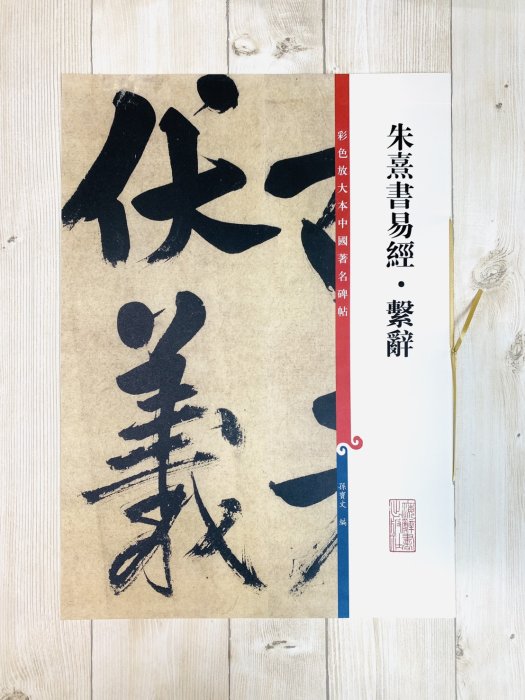 朱熹書易經·繫辭
彩色放大本中國著名碑帖
孫寶文 編
伏
義